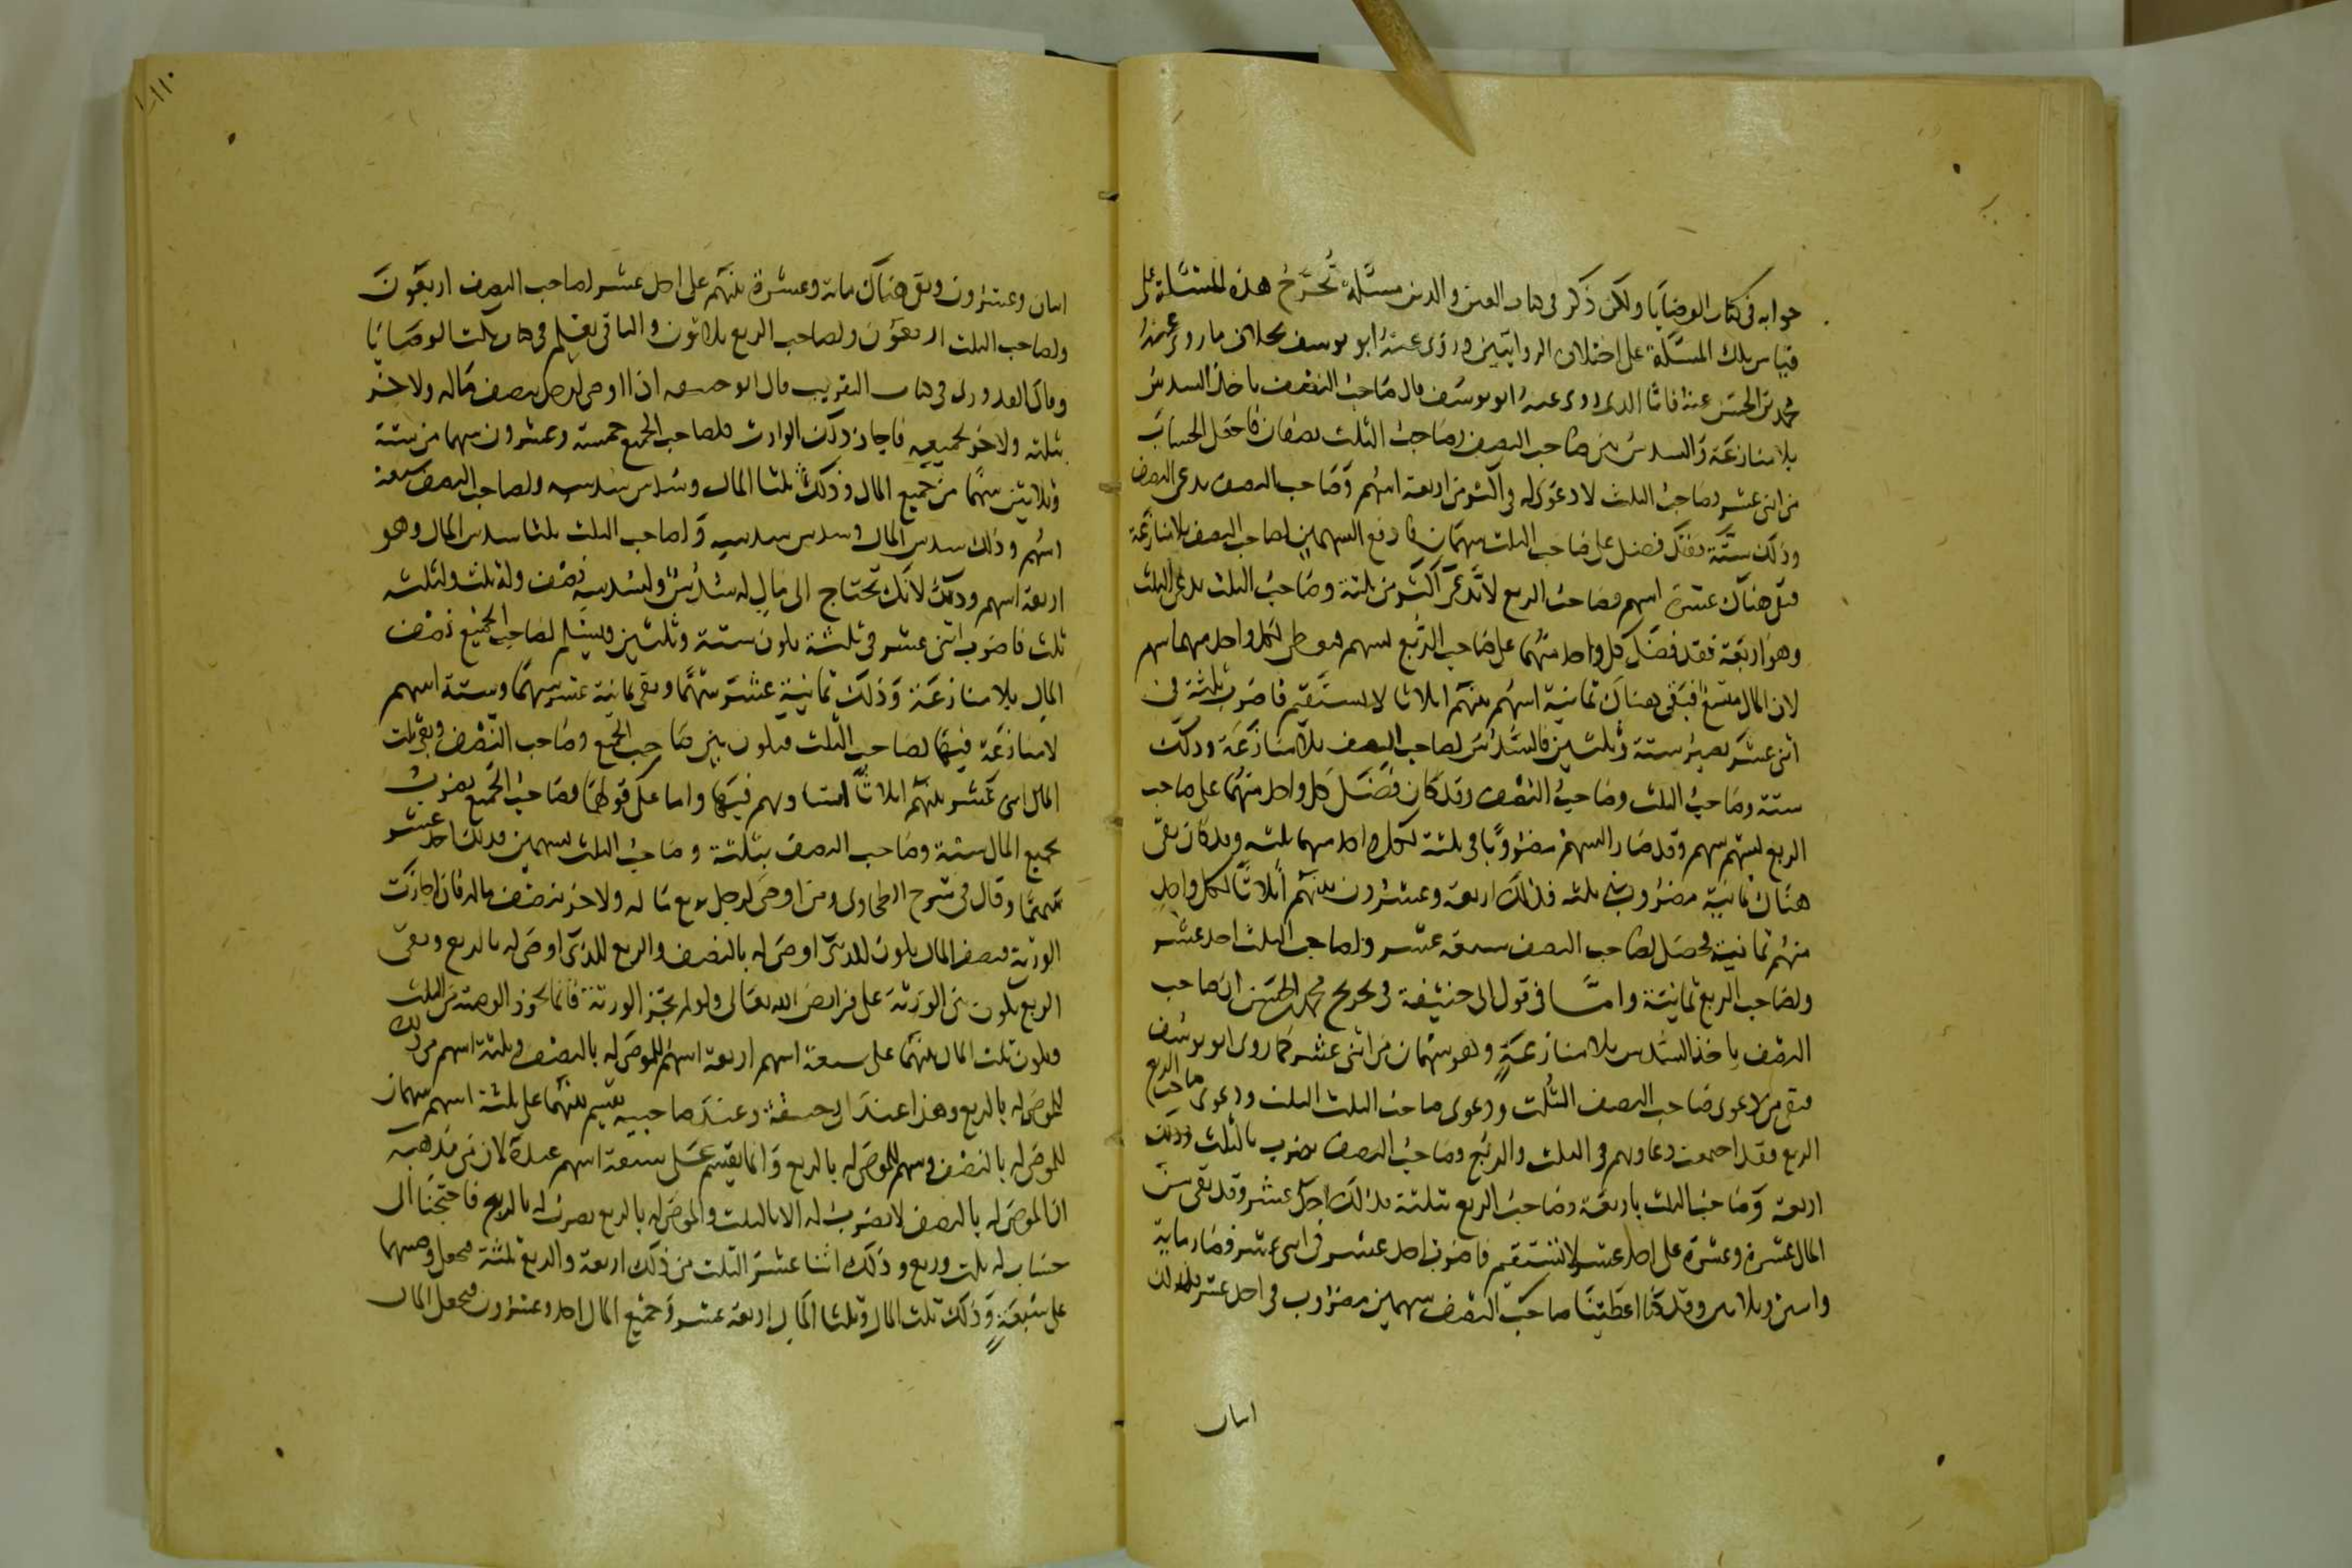 جوابه في كتاب الوصايا ولكن ذكر في كتاب العين والدين مسئلة تُخرَّج هذه المسئلة على
قياس تلك المسئلة على اختلاف الروايتين وروى عنه ابو يوسف بخلاف ما روى عنه
محمد بن الحسن عنه فاما الذي روى عنه ابو يوسف قال صاحب النصف ياخذ السدس
بلا منازعة والسدس بين صاحب النصف وصاحب الثلث نصفان فاجعل الحساب
من اثنى عشر وصاحب الثلث لا دعوى له في اكثر من اربعة اسهم وصاحب النصف يدعى النصف
وذلك ستة فقد فضل على صاحب الثلث سهمان فادفع السهمين لصاحب النصف بلا منازعة
فبقى هناك عشرة اسهم وصاحب الربع لا يدعى اكثر من ثلثة وصاحب الثلث يدعى الثلث
وهو اربعة فقد فضل كل واحد منهما على صاحب الربع بسهم فيعطى لكل واحد منهما سهم
لان المال متسع فبقى هناك ثمانية اسهم بينهم اثلاثا لا يستقيم فاضرب ثلثة في
اثنى عشر يصير ستة وثلثين فالسدس لصاحب النصف بلا منازعة وذلك
ستة وصاحب الثلث وصاحب النصف وقد كان فضل كل واحد منهما على صاحب
الربع بسهم سهم وقد صار السهم مضروبا في ثلثة لكل واحد منهما ثلثه وقد كان بقى
هناك ثمانية مضروب في ثلثه فذلك اربعة وعشرون بينهم اثلاثا لكل واحد
منهم ثمانية فحصل لصاحب النصف سبعة عشر ولصاحب الثلث احد عشر
ولصاحب الربع ثمانية واما في قول ابى حنيفة في تخريج محمد بن الحسن ان صاحب
النصف ياخذ السدس بلا منازعة وهو سهمان من اثنى عشر كما روى ابو يوسف
فبقى من دعوى صاحب النصف الثلث ودعوى صاحب الثلث الثلث ودعوى صاحب الربع
الربع فقد اجتمعت دعاويهم في الثلث والربع وصاحب النصف يضرب بالثلث وذلك
اربعة وصاحب الثلث باربعة وصاحب الربع بثلثة فذلك احد عشر وقد بقى من
المال عشرة وعشرة على احد عشر لا تستقيم فاضرب احد عشر في اثنى عشر فصار مائة
واثنين وثلاثين وقد كنا اعطينا صاحب النصف سهمين مضروب في احد عشر فذلك
اثنان
١١٠
اثنان وعشرون وبقى هناك مائة وعشرة بينهم على احد عشر لصاحب النصف اربعون
ولصاحب الثلث اربعون ولصاحب الربع ثلاثون والباقى يعلم في كتاب الوصايا
وقال القدورى في كتاب التقريب قال ابو حنيفة اذا اوصى لرجل بنصف ماله ولاخر
بثلثه ولاخر بجميعه فاجاز ذلك الوارث فلصاحب الجميع خمسة وعشرون سهما من ستة
وثلاثين سهما من جميع المال وذلك ثلثا المال وسدس سدسه ولصاحب النصف سبعة
اسهم وذلك سدس المال وسدس سدسه ولصاحب الثلث ثلثا سدس المال وهو
اربعة اسهم وذلك لانك تحتاج الى مال له سدس ولسدسه نصف وله ثلث ولثلثه
ثلث فاضرب اثنى عشر في ثلثة يكون ستة وثلثين ويسلم لصاحب الجميع نصف
المال بلا منازعة وذلك ثمانية عشر سهما وبقى ثمانية عشر سهما وستة اسهم
لا منازعة فيها لصاحب الثلث فيكون بين صاحب الجميع وصاحب النصف وبقى ثلث
المال اثنى عشر بينهم اثلاثا لتساويهم فيها واما على قولهما فصاحب الجميع يضرب
بجميع المال ستة وصاحب النصف بثلثة وصاحب الثلث بسهمين فذلك احد عشر
سهما وقال في شرح الطحاوى ومن اوصى لرجل بربع ماله ولاخر بنصف ماله فان اجازت
الورثة فنصف المال يكون للذى اوصى له بالنصف والربع للذى اوصى له بالربع وبقى
الربع يكون بين الورثة على فرائض الله تعالى ولو لم تجز الورثة فانما تجوز الوصية من الثلث
ويكون ثلث المال بينهما على سبعة اسهم اربعة اسهم للموصى له بالنصف وثلثة اسهم من ذلك
للموصى له بالربع وهذا عند ابى حنيفة وعند صاحبيه يقسم بينهما على ثلثة اسهم سهمان
للموصى له بالنصف وسهم للموصى له بالربع وانما يقسم على سبعة اسهم عنده لان من مذهبه
ان الموصى له بالنصف لا يضرب له الا بالثلث والموصى له بالربع يضرب له بالربع فاحتجنا الى
حساب له ثلث وربع وذلك اثنا عشر الثلث من ذلك اربعة والربع ثلثة فيجعل وصيتهما
على سبعة وذلك ثلث المال وثلثا المال اربعة عشر وجميع المال احد وعشرون فيجعل المال